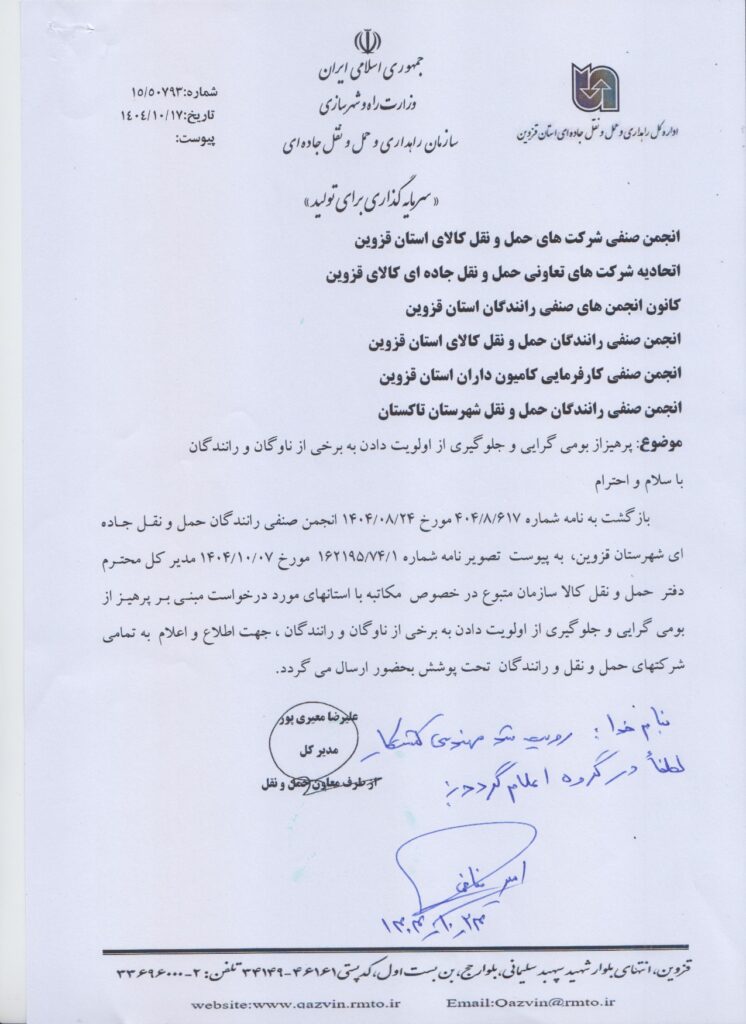 جمهوری اسلامی ایران
وزارت راه و شهرسازی
سازمان راهداری و حمل و نقل جاده ای
اداره کل راهداری و حمل و نقل جاده ای استان قزوین
شماره:۱۵/۵۰۷۹۳
تاریخ:۱۴۰۴/۱۰/۱۷
پیوست:
«سرمایه گذاری برای تولید»
انجمن صنفی شرکت های حمل و نقل کالای استان قزوین
اتحادیه شرکت های تعاونی حمل و نقل جاده ای کالای قزوین
کانون انجمن های صنفی رانندگان استان قزوین
انجمن صنفی رانندگان حمل و نقل کالای استان قزوین
انجمن صنفی کارفرمایی کامیون داران استان قزوین
انجمن صنفی رانندگان حمل و نقل شهرستان تاکستان
موضوع: پرهیزاز بومی گرایی و جلوگیری از اولویت دادن به برخی از ناوگان و رانندگان
با سلام و احترام
بازگشت به نامه شماره ۴۰۴/۸/۶۱۷ مورخ ۱۴۰۴/۰۸/۲۴ انجمن صنفی رانندگان حمل و نقل جاده
ای شهرستان قزوین، به پیوست تصویر نامه شماره ۱۶۲۱۹۵/۷۴/۱ مورخ ۱۴۰۴/۱۰/۰۷ مدیر کل محترم
دفتر حمل و نقل کالا سازمان متبوع در خصوص مکاتبه با استانهای مورد درخواست مبنی بر پرهیز از
بومی گرایی و جلوگیری از اولویت دادن به برخی از ناوگان و رانندگان ، جهت اطلاع و اعلام به تمامی
شرکتهای حمل و نقل و رانندگان تحت پوشش بحضور ارسال می گردد.
علیرضا معیری پور
مدیر کل
از طرف معاون حمل و نقل
بنام خدا: رویت شد مهندس
لطفاً در گروه اعلام گردد
امیر
۱۴۰۴/۱۰/۲۴
قزوین، انتهای بلوار شهید سپهبد سلیمانی، بلوار حج، بن بست اول، کدپستی ۴۶۱۶۱-۳۴۱۴۹ تلفن: ۲-۳۳۶۹۶۰۰۰
website:www.qazvin.rmto.ir Email:Qazvin@rmto.ir